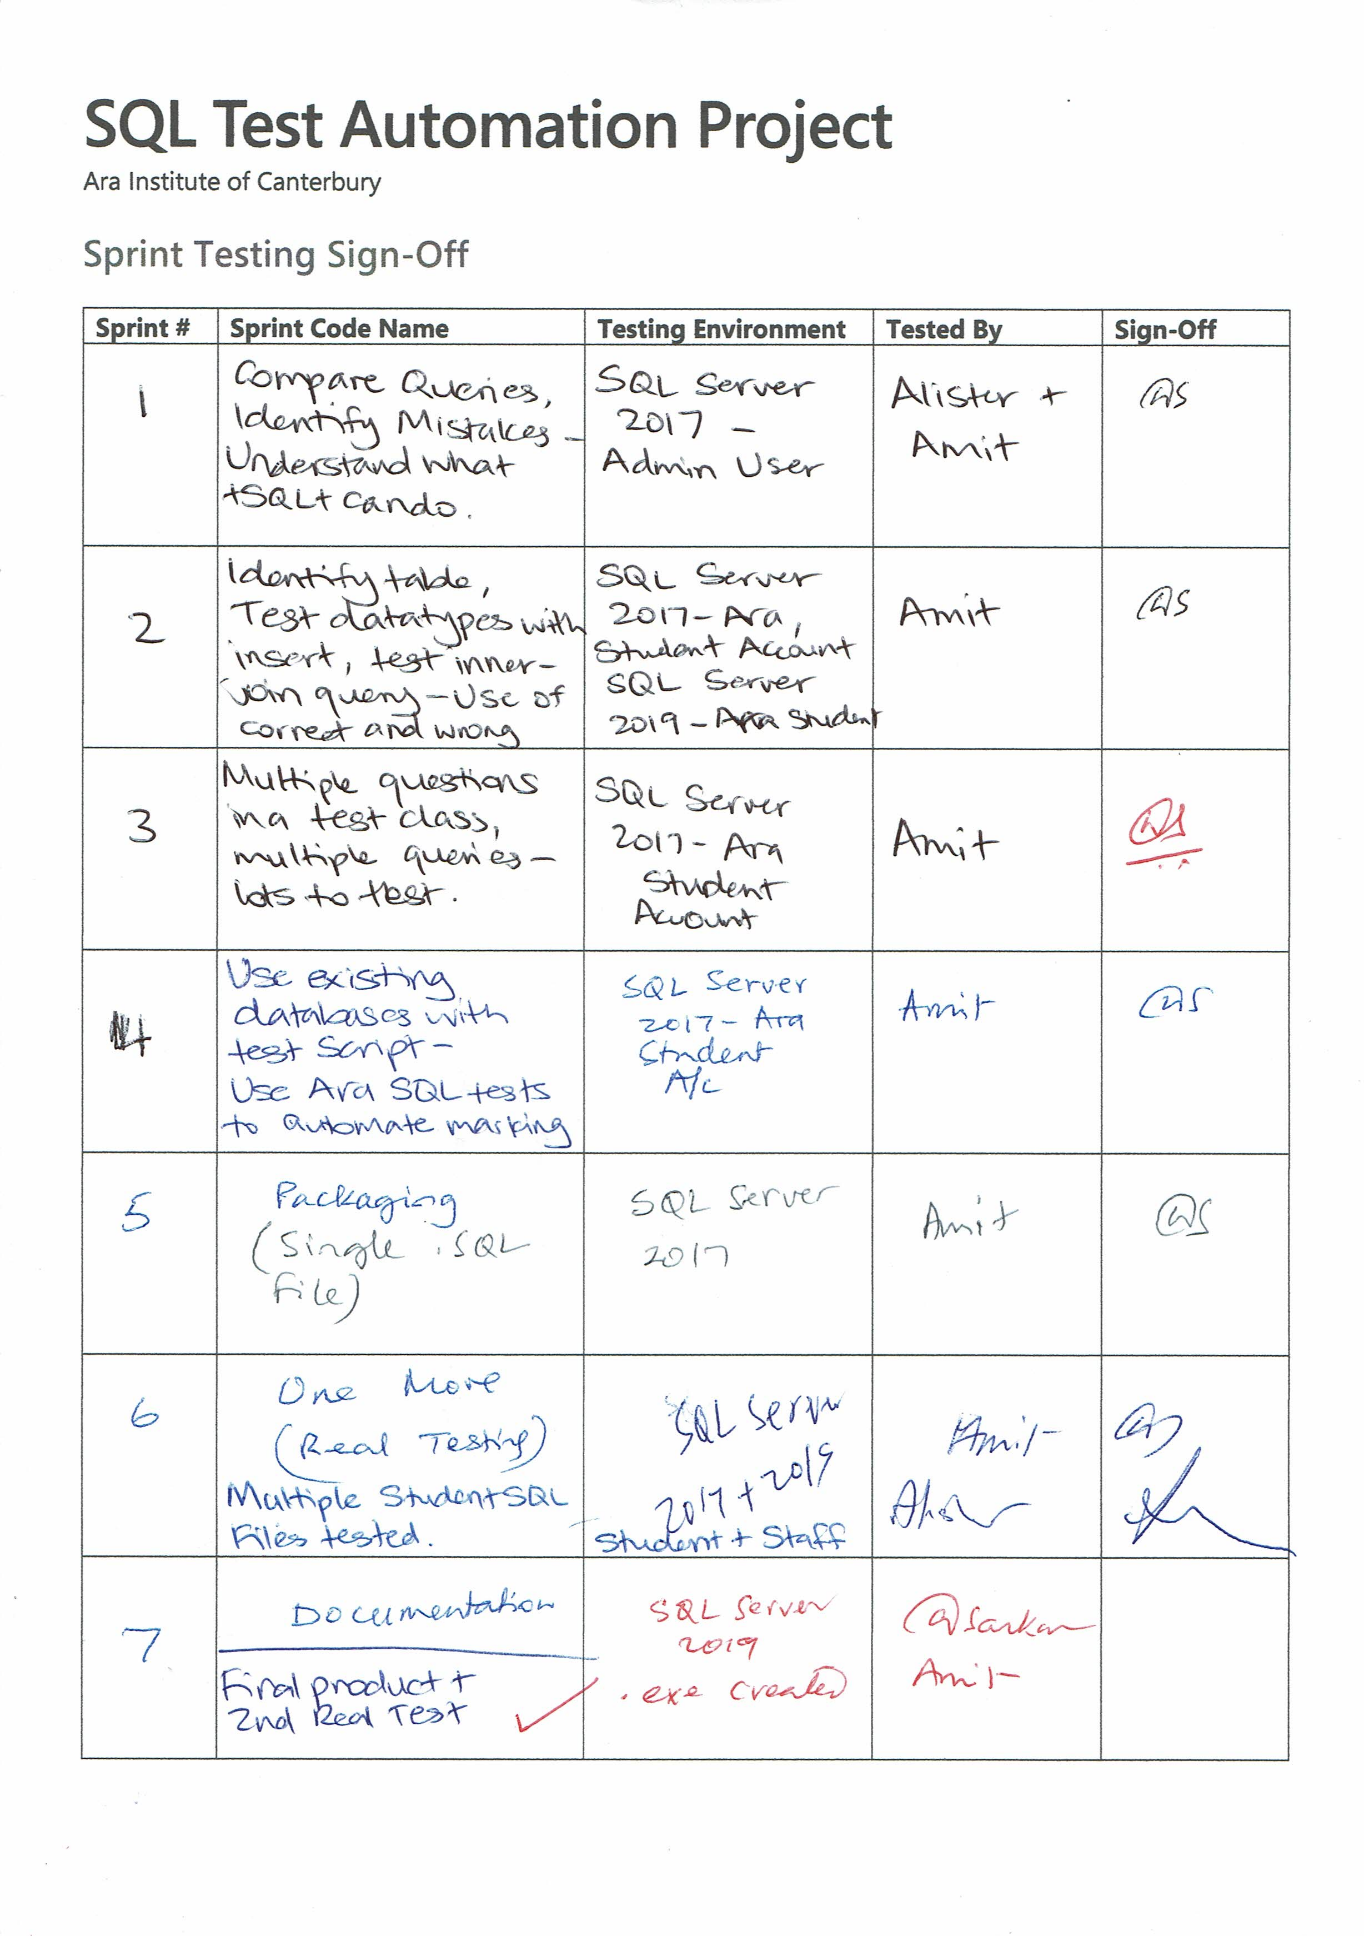 SQL Test Automation Project
Ara Institute of Canterbury
Sprint Testing Sign-Off
Sprint # Sprint Code Name Testing Environment Tested By Sign-Off
1
Compare Queries,
Identify Mistakes -
Understand what
tSQLt can do.
SQL Server
2017 -
Admin User
Alister +
Amit
AS
2
Identify table,
Test datatypes with
insert, test inner-
join query - Use of
correct and wrong
SQL Server
2017 - Ara,
Student Account
SQL Server
2019 - Ara Student
Amit
AS
3
Multiple questions
in a test class,
multiple queries -
lots to test.
SQL Server
2017 - Ara
Student
Account
Amit
AS
4
Use existing
databases with
test Script -
Use Ara SQL tests
to automate marking
SQL Server
2017 - Ara
Student
A/c
Amit
AS
5
Packaging
(Single .SQL
File)
SQL Server
2017
Amit
AS
6
One More
(Real Testing)
Multiple Student SQL
Files tested.
SQL Server
2017 + 2019
Student + Staff
Amit
AS
7
Documentation
Final product +
2nd Real Test
SQL Server
2019
.exe created
ASarkar
Amit